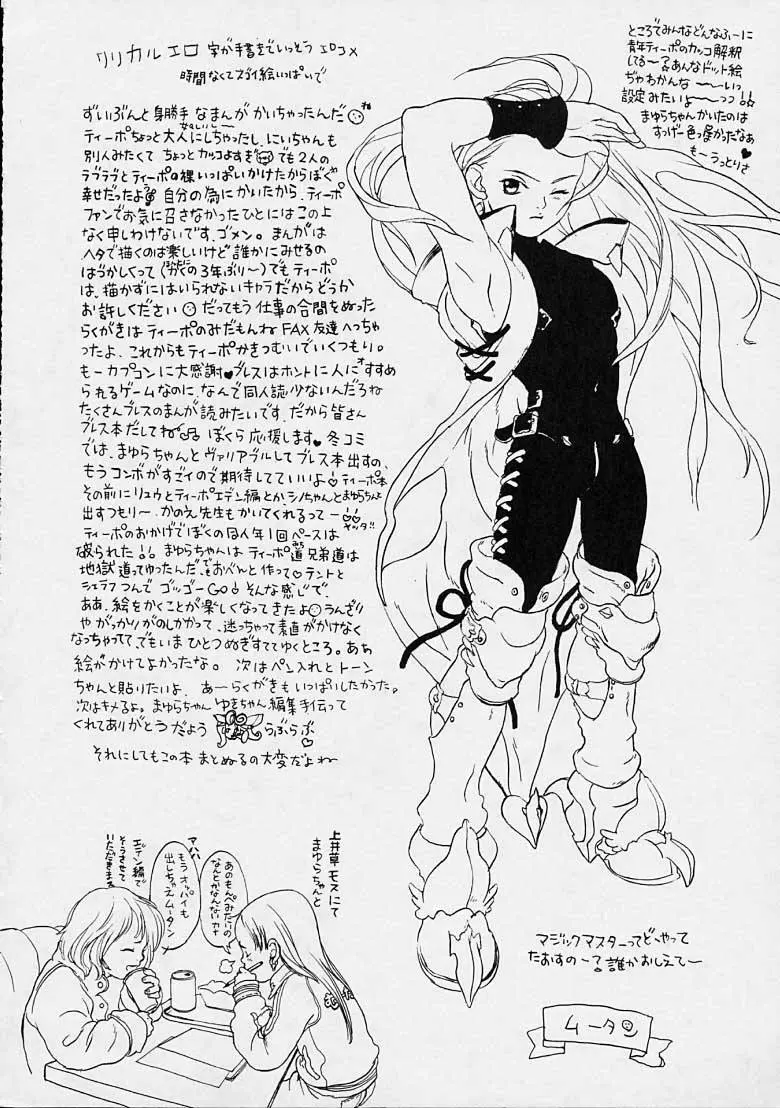 リリカルエロ 字が手書きでいっそう エロコメ
時間なくてズガイ絵いっぱいで
ずいぶんと身勝手なまんがかいちゃったんだ ね
ティーポちょっと大人にしちゃったし、にいちゃんも
別人みたくて ちょっとカッコよすぎ でも2人の
ラブラブとティーポの裸いっぱいかけたからぼくゎ
幸せだったよ 自分の為にかいたから、ティーポ
ファンでお気に召さなかったひとにはこの上
なく申しわけないです、ゴメン。まんがは
ヘタで描くのは楽しいけど誰かにみせるの
はづかしくって(の3年ぶり〜)でもティーポ
は、描かずにはいられないキャラだからどうか
お許しください だってもう仕事の合間をぬった
らくがきは ティーポのみだもんね FAX友達へっちゃ
ったよ、これからもティーポかきつむいでいくつもり。
もーカプコンに大感謝♥ブレスはホントに人にすすめ
られるゲームなのに、なんで同人誌少ないんだろね
たくさんブレスのまんが読みたいです。だから皆さん
ブレス本だしてね ぼくら応援します♥冬コミ
では、まゆらちゃんとヴァリアブルしてブレス本出すの、
もうコンボがすごイので期待してていいよ ティーポ本
その前にリュウとティーポエデン編とかシノちゃんとまゆらちゃんと
出すつもり〜 かのえ先生もかいてくれるってー ヤッタ!!
ティーポのおかげでぼくの同人年1回ペースは
破られた!! まゆらちゃんは ティーポ道兄弟道は
地獄道ってゆったんだ でもおべんと作って♥テントと
シェラフつんでゴッゴーGo そんな感じで
ああ、絵をかくことが楽しくなってきたよ うんざり
や がっかりがのしかかって、迷っちゃって素直がかけなく
なっちゃってて、でもいま ひとつぬぎすててゆくところ。あぁ
絵がかけてよかったな。 次はペン入れとトーン
ちゃんと貼りたいよ、あーらくがきもいっぱいしたかった。
次はキメるよ。まゆらちゃん ゆきちゃん編集手伝って
くれてありがとう だよう らぶらぶ♥
それにしてもこの本 まとめるの大変だよね
ところでみんなどんなふーに
青年ティーポのカッコ解釈
してる〜?あんなドット絵
ぢゃわかんな〜〜いっ
設定みたいよ〜〜つつ!!
まゆらちゃんかいたのは
すっげー色っぽかったなぁ
もーうっとりさ♥
上井草モスにて
まゆらちゃんと
あのもんぺみたいの
なんとかなんないカナ
もうオッパイも
出しちゃえムータン
アハハ
エデン編で
そうさせて
いただきます
マジックマスターってどーやって
たおすのー? 誰かおしえてー
ムータン